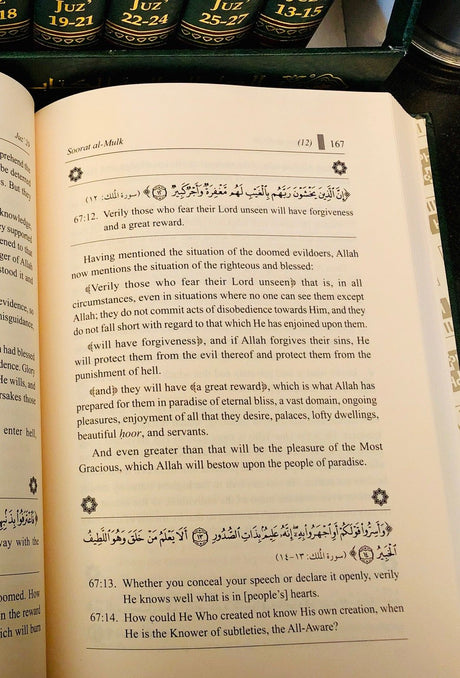 18
Juz’
19-21
Juz’
22-24
Juz’
25-27
Juz’
13-15
Juz’ 29
Soorat al-Mulk (12) 167
﴿إِنَّ ٱلَّذِينَ يَخْشَوْنَ رَبَّهُم بِٱلْغَيْبِ لَهُم مَّغْفِرَةٌ وَأَجْرٌ كَبِيرٌ ۝١٢﴾ (سورة الملك: ١٢)
67:12. Verily those who fear their Lord unseen will have forgiveness
and a great reward.
Having mentioned the situation of the doomed evildoers, Allah
now mentions the situation of the righteous and blessed:
﴾Verily those who fear their Lord unseen﴿ that is, in all
circumstances, even in situations where no one can see them except
Allah; they do not commit acts of disobedience towards Him, and they
do not fall short with regard to that which He has enjoined upon them.
﴾will have forgiveness﴿, and if Allah forgives their sins, He
will protect them from the evil thereof and protect them from the
punishment of hell.
﴾and﴿ they will have ﴾a great reward﴿, which is what Allah has
prepared for them in paradise of eternal bliss, a vast domain, ongoing
pleasures, enjoyment of all that they desire, palaces, lofty dwellings,
beautiful hoor, and servants.
And even greater than that will be the pleasure of the Most
Gracious, which Allah will bestow upon the people of paradise.
﴿وَأَسِرُّوا۟ قَوْلَكُمْ أَوِ ٱجْهَرُوا۟ بِهِۦٓ إِنَّهُۥ عَلِيمٌۢ بِذَاتِ ٱلصُّدُورِ ۝١٣ أَلَا يَعْلَمُ مَنْ خَلَقَ وَهُوَ ٱللَّطِيفُ
ٱلْخَبِيرُ ۝١٤﴾ (سورة الملك: ١٣-١٤)
67:13. Whether you conceal your speech or declare it openly, verily
He knows well what is in [people’s] hearts.
67:14. How could He Who created not know His own creation, when
He is the Knower of subtleties, the All-Aware?